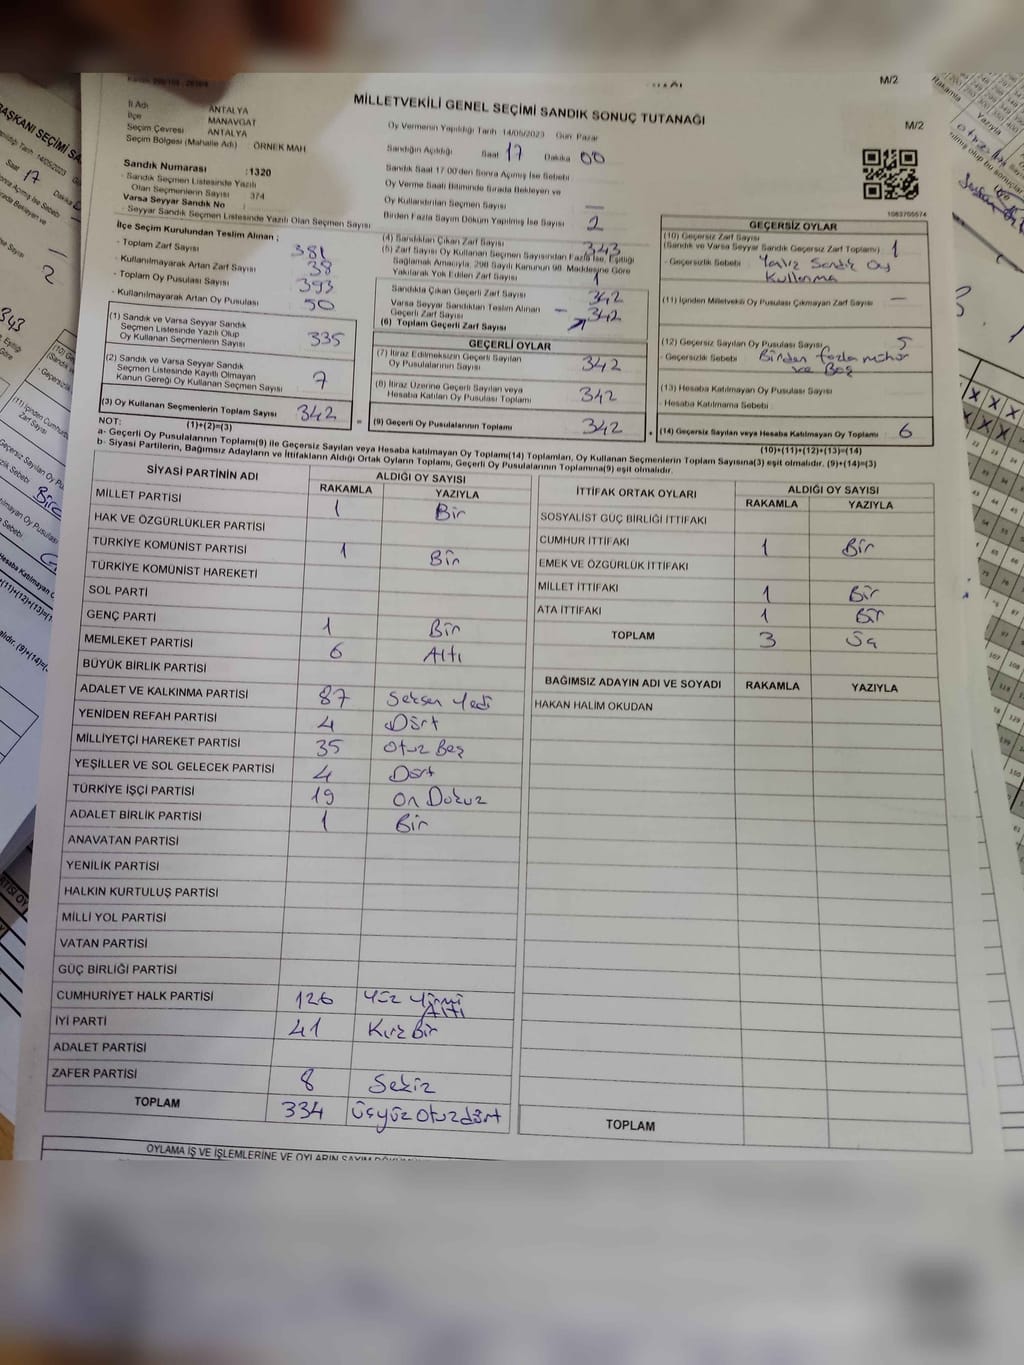 M/2
MİLLETVEKİLİ GENEL SEÇİMİ SANDIK SONUÇ TUTANAĞI
M/2
İl Adı ANTALYA
İlçe MANAVGAT
Seçim Çevresi ANTALYA
Seçim Bölgesi (Mahalle Adı) ÖRNEK MAH
Oy Vermenin Yapıldığı Tarih 14/05/2023 Gün Pazar
Sandığın Açıldığı Saat 17 Dakika 00
Sandık Saat 17 00'den Sonra Açılmış İse Sebebi
Oy Verme Saati Bitiminde Sırada Bekleyen ve
Oy Kullandırılan Seçmen Sayısı —
Birden Fazla Sayım Döküm Yapılmış İse Sayısı 2
Sandık Numarası :1320
- Sandık Seçmen Listesinde Yazılı
Olan Seçmenlerin Sayısı 374
Varsa Seyyar Sandık No
- Seyyar Sandık Seçmen Listesinde Yazılı Olan Seçmen Sayısı
1083705574
İlçe Seçim Kurulundan Teslim Alınan ;
- Toplam Zarf Sayısı 381
- Kullanılmayarak Artan Zarf Sayısı 38
- Toplam Oy Pusulası Sayısı 393
- Kullanılmayarak Artan Oy Pusulası 50
(1) Sandık ve Varsa Seyyar Sandık
Seçmen Listesinde Yazılı Olup
Oy Kullanan Seçmenlerin Sayısı 335
(2) Sandık ve Varsa Seyyar Sandık
Seçmen Listesinde Kayıtlı Olmayan
Kanun Gereği Oy Kullanan Seçmen Sayısı 7
(3) Oy Kullanan Seçmenlerin Toplam Sayısı 342
(4) Sandıktan Çıkan Zarf Sayısı 343
(5) Zarf Sayısı Oy Kullanan Seçmen Sayısından Fazla İse, Eşitliği
Sağlamak Amacıyla, 298 Sayılı Kanunun 98. Maddesine Göre
Yakılarak Yok Edilen Zarf Sayısı 1
Sandıkta Çıkan Geçerli Zarf Sayısı 342
Varsa Seyyar Sandıktan Teslim Alınan
Geçerli Zarf Sayısı —
(6) Toplam Geçerli Zarf Sayısı 342
GEÇERLİ OYLAR
(7) İtiraz Edilmeksizin Geçerli Sayılan
Oy Pusulalarının Sayısı 342
(8) İtiraz Üzerine Geçerli Sayılan veya
Hesaba Katılan Oy Pusulası Toplamı 342
= (9) Geçerli Oy Pusulalarının Toplamı 342
GEÇERSİZ OYLAR
(10) Geçersiz Zarf Sayısı
(Sandık ve Varsa Seyyar Sandık Geçersiz Zarf Toplamı) 1
- Geçersizlik Sebebi Yalnız Sandık Oy
Kullanma
(11) İçinden Milletvekili Oy Pusulası Çıkmayan Zarf Sayısı —
(12) Geçersiz Sayılan Oy Pusulası Sayısı 5
- Geçersizlik Sebebi Birden fazla mühür
ve Boş
(13) Hesaba Katılmayan Oy Pusulası Sayısı
- Hesaba Katılmama Sebebi
+ (14) Geçersiz Sayılan veya Hesaba Katılmayan Oy Toplamı 6
NOT: (1)+(2)=(3)
(10)+(11)+(12)+(13)=(14)
a- Geçerli Oy Pusulalarının Toplamı(9) ile Geçersiz Sayılan veya Hesaba katılmayan Oy Toplamı(14) Toplamları, Oy Kullanan Seçmenlerin Toplam Sayısına(3) eşit olmalıdır. (9)+(14)=(3)
b- Siyasi Partilerin, Bağımsız Adayların ve İttifakların Aldığı Ortak Oyların Toplamı, Geçerli Oy Pusulalarının Toplamına(9) eşit olmalıdır.
SİYASİ PARTİNİN ADI ALDIĞI OY SAYISI
RAKAMLA YAZIYLA
MİLLET PARTİSİ 1 Bir
HAK VE ÖZGÜRLÜKLER PARTİSİ
TÜRKİYE KOMÜNİST PARTİSİ 1 Bir
TÜRKİYE KOMÜNİST HAREKETİ
SOL PARTİ
GENÇ PARTİ 1 Bir
MEMLEKET PARTİSİ 6 Altı
BÜYÜK BİRLİK PARTİSİ
ADALET VE KALKINMA PARTİSİ 87 Seksen Yedi
YENİDEN REFAH PARTİSİ 4 Dört
MİLLİYETÇİ HAREKET PARTİSİ 35 Otuz Beş
YEŞİLLER VE SOL GELECEK PARTİSİ 4 Dört
TÜRKİYE İŞÇİ PARTİSİ 19 On Dokuz
ADALET BİRLİK PARTİSİ 1 Bir
ANAVATAN PARTİSİ
YENİLİK PARTİSİ
HALKIN KURTULUŞ PARTİSİ
MİLLİ YOL PARTİSİ
VATAN PARTİSİ
GÜÇ BİRLİĞİ PARTİSİ
CUMHURİYET HALK PARTİSİ 126 Yüz Yirmi
Altı
İYİ PARTİ 41 Kırk Bir
ADALET PARTİSİ
ZAFER PARTİSİ 8 Sekiz
TOPLAM 334 Üçyüz Otuzdört
İTTİFAK ORTAK OYLARI ALDIĞI OY SAYISI
RAKAMLA YAZIYLA
SOSYALİST GÜÇ BİRLİĞİ İTTİFAKI
CUMHUR İTTİFAKI 1 Bir
EMEK VE ÖZGÜRLÜK İTTİFAKI
MİLLET İTTİFAKI 1 Bir
ATA İTTİFAKI 1 Bir
TOPLAM 3 Üç
BAĞIMSIZ ADAYIN ADI VE SOYADI RAKAMLA YAZIYLA
HAKAN HALİM OKUDAN
TOPLAM
OYLAMA İŞ VE İŞLEMLERİNE VE OYLARIN SAYIM